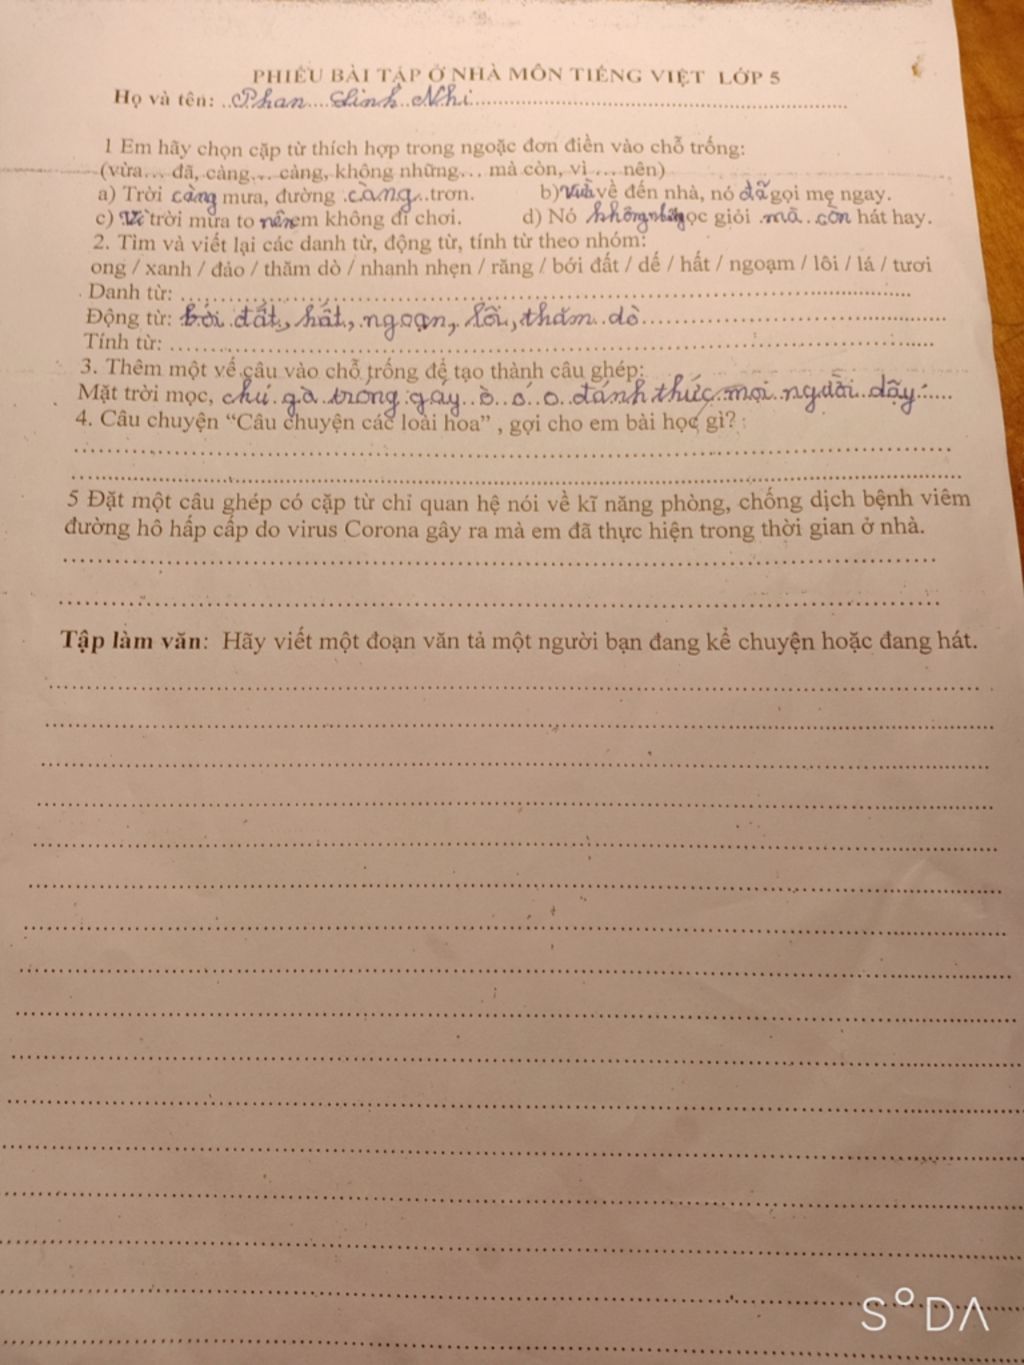 PHIẾU BÀI TẬP Ở NHÀ MÔN TIẾNG VIỆT LỚP 5
Họ và tên: Phan Linh Nhi
1 Em hãy chọn cặp từ thích hợp trong ngoặc đơn điền vào chỗ trống:
(vừa... đã, càng... càng, không những... mà còn, vì ... nên)
a) Trời càng mưa, đường càng trơn. b) Vừa về đến nhà, nó đã gọi mẹ ngay.
c) Vì trời mưa to nên em không đi chơi. d) Nó không những học giỏi mà còn hát hay.
2. Tìm và viết lại các danh từ, động từ, tính từ theo nhóm:
ong / xanh / đảo / thăm dò / nhanh nhẹn / răng / bới đất / dế / hất / ngoạm / lôi / lá / tươi
Danh từ:
Động từ: bới đất, hất, ngoạn, lôi, thăm dò
Tính từ:
3. Thêm một vế câu vào chỗ trống để tạo thành câu ghép:
Mặt trời mọc, chú gà trống gáy ò ó o đánh thức mọi người dậy.
4. Câu chuyện “Câu chuyện các loài hoa” , gợi cho em bài học gì?
5 Đặt một câu ghép có cặp từ chỉ quan hệ nói về kĩ năng phòng, chống dịch bệnh viêm
đường hô hấp cấp do virus Corona gây ra mà em đã thực hiện trong thời gian ở nhà.
Tập làm văn: Hãy viết một đoạn văn tả một người bạn đang kể chuyện hoặc đang hát.
SODA